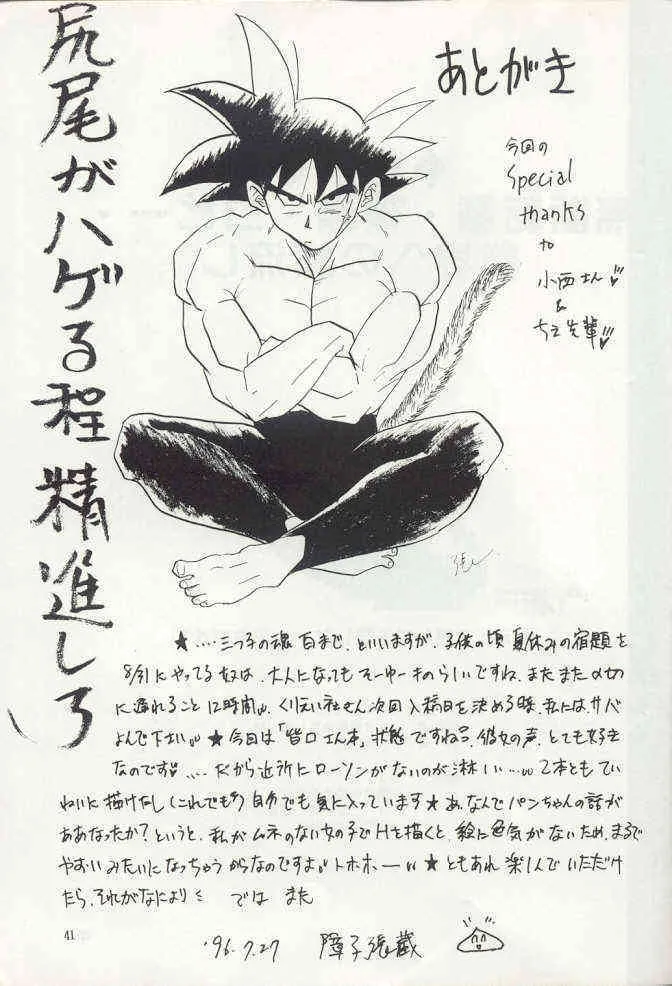 尻尾がハゲる程
精進しろ
あとがき
今回の
special
thanks
to
小西さん
&
先輩
★‥‥三つ子の魂百まで、といいますが、子供の頃夏休みの宿題を
8/31にやってる奴は、大人になってもそーゆーものらしいですね。またまた〆切
に遅れること12時間。くりえい社さん次回入稿日を決める時、私には、サバ
よんで下さい。★今回は「皆口さん本」状態ですね。彼女の声、とても好き
なのです‥‥だから近所にローソンがないのが淋しい…。2本ともてい
ねいに描けたし(これでも)自分でも気に入っています★あ、なんでパンちゃんの話が
ああなったか?というと、私がムネのない女の子でHを描くと、絵に色気がないため、まるで
やおいみたいになっちゃうからなのですよ。トホホー★ともあれ楽しんでいただけ
たら、それがなにより では また
41
'96.7.27 障子張蔵